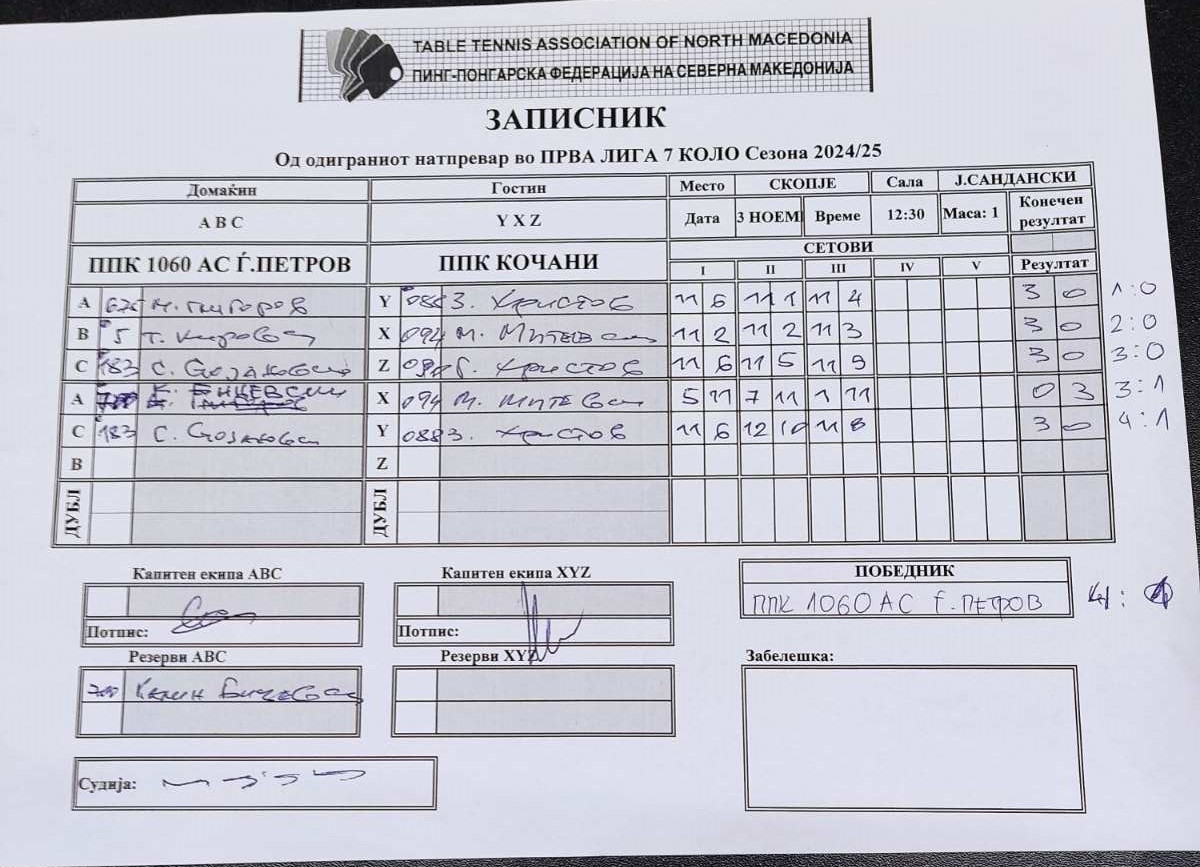 TABLE TENNIS ASSOCIATION OF NORTH MACEDONIA
ПИНГ-ПОНГАРСКА ФЕДЕРАЦИЈА НА СЕВЕРНА МАКЕДОНИЈА
ЗАПИСНИК
Од одиграниот натпревар во ПРВА ЛИГА 7 КОЛО Сезона 2024/25
Домаќин Гостин Место СКОПЈЕ Сала Ј.САНДАНСКИ
A B C Y X Z Дата 3 НОЕМ Време 12:30 Маса: 1 Конечен резултат
ППК 1060 АС Ѓ.ПЕТРОВ ППК КОЧАНИ СЕТОВИ
I II III IV V Резултат
A Y 088 З. Христов 11 6 11 1 11 4 3 0 1:0
B 5 Т. X 094 М. Митевски 11 2 11 2 11 3 3 0 2:0
C 183 С. Стојановски Z Христов 11 6 11 5 11 9 3 0 3:0
A К. X 094 М. Митевски 5 11 7 11 1 11 0 3 3:1
C 183 С. Стојановски Y 088 З. Христов 11 6 12 10 11 8 3 0 4:1
B Z
ДУБЛ ДУБЛ
Капитен екипа ABC Капитен екипа XYZ ПОБЕДНИК
ППК 1060 АС Ѓ.ПЕТРОВ 4:1
Потпис: Потпис:
Резерви ABC Резерви XYZ Забелешка:
700 Калин
Судија: